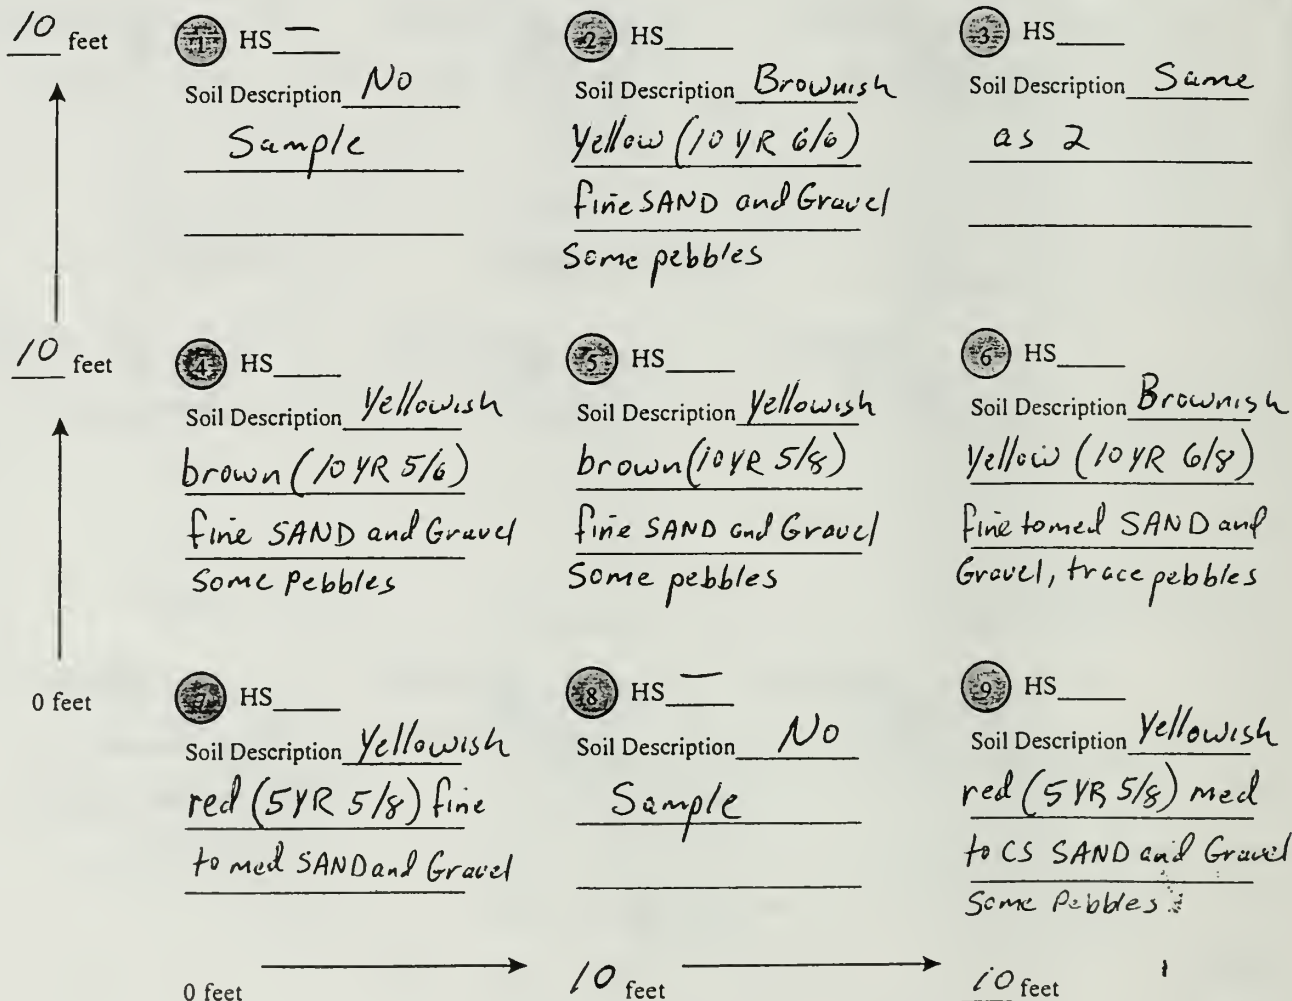 10 feet
1 HS —
Soil Description No
Sample
2 HS____
Soil Description Brownish
Yellow (10 YR 6/6)
fine SAND and Gravel
Some pebbles
3 HS____
Soil Description Same
as 2
10 feet
4 HS____
Soil Description Yellowish
brown (10 YR 5/6)
fine SAND and Gravel
Some Pebbles
5 HS____
Soil Description Yellowish
brown (10 YR 5/8)
fine SAND and Gravel
Some pebbles
6 HS____
Soil Description Brownish
Yellow (10 YR 6/8)
fine to med SAND and
Gravel, trace pebbles
0 feet
7 HS____
Soil Description Yellowish
red (5 YR 5/8) fine
to med SAND and Gravel
8 HS —
Soil Description No
Sample
9 HS____
Soil Description Yellowish
red (5 YR 5/8) med
to CS SAND and Gravel
Some Pebbles
0 feet 10 feet 10 feet